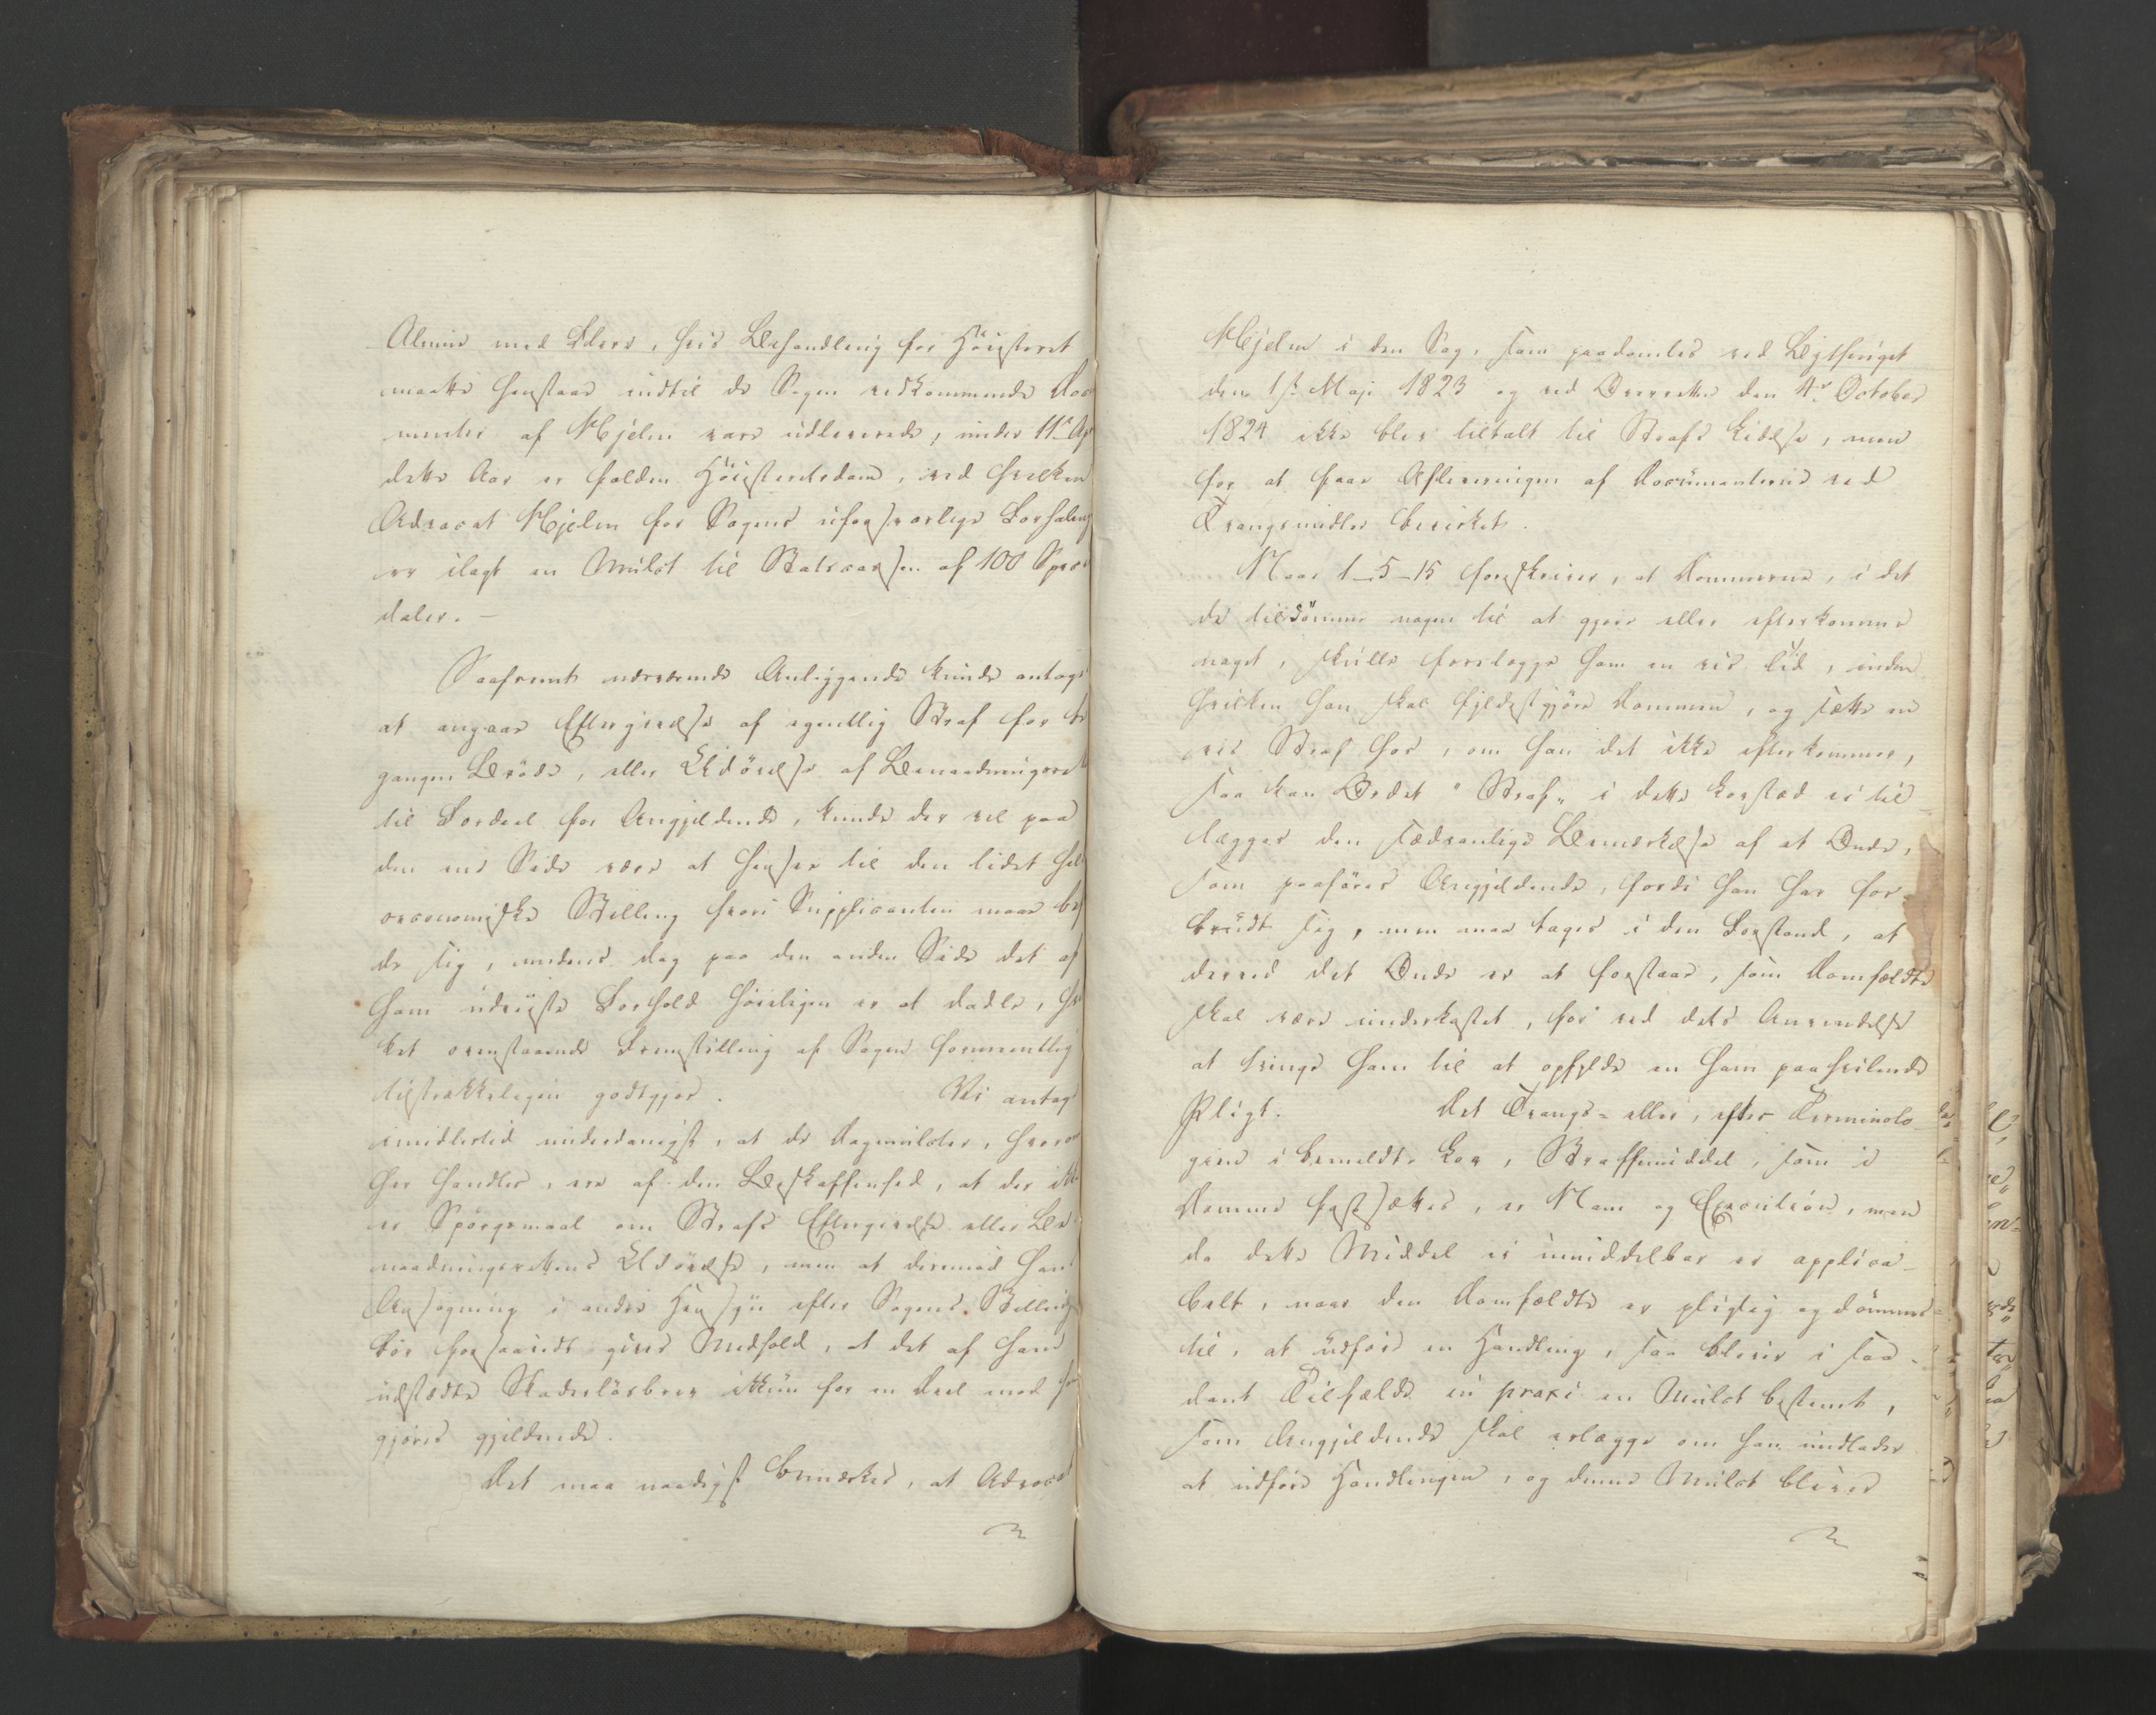 Almin med Flere, hvis Behandling for Höiesteret
maatte henstaae indtil de Sagen vedkommende Docu
menter af Hjelm vare udleverede, under 11te Apr
dette Aar er falden Höiesteretsdom, ved hvilken
Advocat Hjelm for Sagens uforsvarlige Forhaling
er ilagt en Mulct til Statscassen af 100 Specie
daler. —
Saafremt nærværende Anliggende kunde antages
at angaae Eftergivelse af egentlig Straf for be
gangen Bröde, eller Udövelse af Benaadningsret
til Fordeel for Angjeldende, kunde der vel paa
den ene Side være at hensee til den lidet hel
oeconomiske Stilling hvori Supplicanten maae bef
de sig, medens dog paa den anden Side det af
ham udviiste Forhold höieligen er at dadle, hvil
ket ovenstaaende Fremstilling af Sagen formeentlig
tilstrækkeligen godtgjör. Vi antage
imidlertid underdanigst, at de Dagmulcter, hvorom
her handles, ere af den Beskaffenhed, at der ikke
er Spörgsmaal om Strafs Eftergivelse eller Be
naadningsrettens Udövelse, men at derimod hans
Ansögning i andre Hensyn efter Sagens Stilling
bör forsaavidt gives Medhold, at det af ham
udstædte Skadeslösbrev ikkun for en Deel med
gjöres gjeldende.
Det maa naadigst bemærkes, at Advocat
Hjelm i den Sag, som paadömtes ved Bytinget
den 1ste Maji 1823 og ved Overretten den 4de October
1824 ikke blev tiltalt til Strafs Lidelse, men
for at faae Afleveringen af Documenterne ved
Tvangsmidler bevirket.
Naar 1-5-15 foreskriver, at Dommerne, i det
de tildömme nogen til at gjöre eller efterkomme
noget, skulle forelægge ham en vis Tid, inden
hvilken han skal fyldestgjöre Dommen, og sætte en
vis Straf for, om han det ikke efterkommer,
saa kan Ordet "Straf" i dette Lovsted ei til
lægges den sædvanlige Bemærkelse af et Onde,
som paaföres Angjeldende, fordi han har for-
brudt sig, men maa tages i den Forstand, at
derved det Onde er at forstaae, som Domfældte
skal være underkastet, for ved dets Anvendelse
at tvinge ham til at opfylde en ham paahvilende
Pligt. Det Tvangs- eller, efter Terminolo-
gien i bemeldte Lov, Straffemiddel, som i
Domme fastsættes, er Nam og Execution, men
da dette Middel ei umiddelbar er applica-
belt, naar den Domfældte er pligtig og dömmes
til, at udföre en Handling, saa bliver i saa-
dant Tilfælde in praxi en Mulct bestemt,
som Angjeldende skal erlægge om han undlader
at udföre Handlingen, og denne Mulct bliver